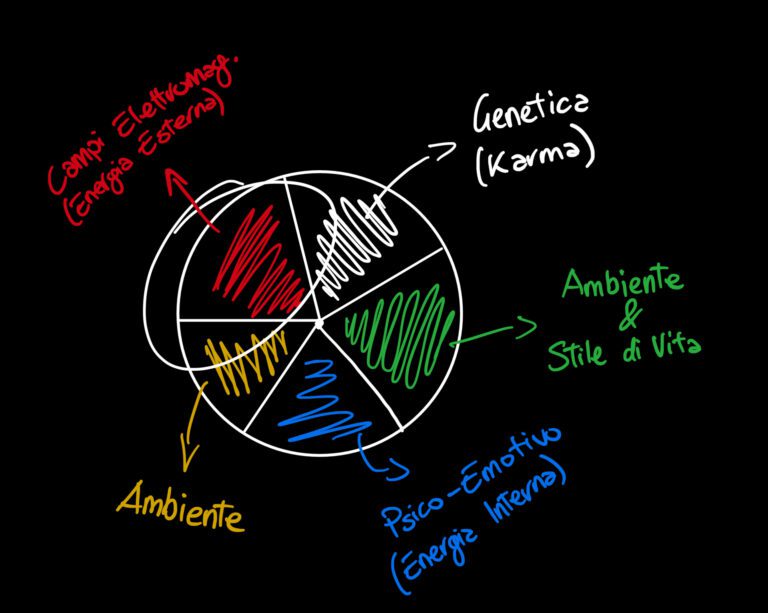 Campi Elettromag.
(Energia Esterna)
Genetica
(Karma)
Ambiente
&
Stile di Vita
Ambiente
Psico-Emotivo
(Energia Interna)